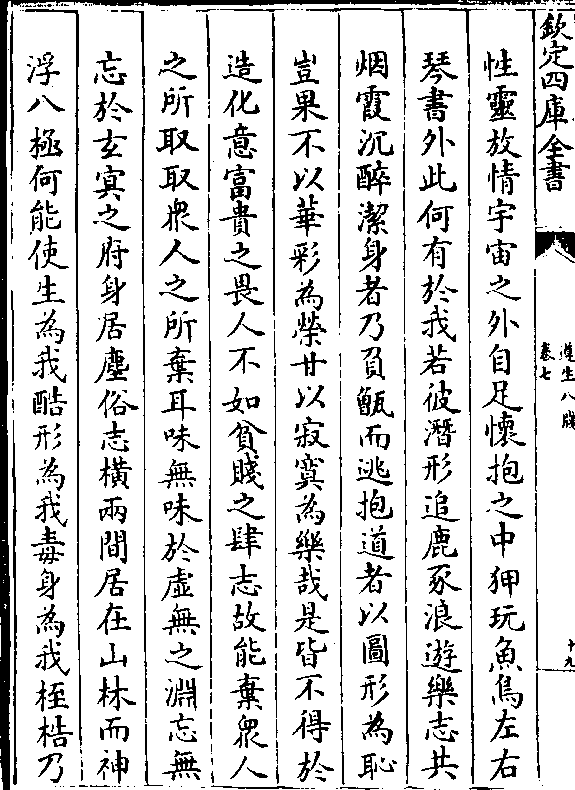 欽定四庫全書
遵生八牋
卷七
十九
性靈放情宇宙之外自足懷抱之中狎玩魚鳥左右
琴書外此何有於我若彼潛形追鹿豕浪遊樂志共
烟霞沉醉潔身者乃負甑而逃抱道者以圖形為恥
豈果不以華彩為榮甘以寂寞為樂哉是皆不得於
造化意富貴之畏人不如貧賤之肆志故能棄衆人
之所取取衆人之所棄耳味無味於虛無之淵忘無
忘於玄冥之府身居塵俗志橫兩間居在山林而神
浮八極何能使生為我酷形為我毒身為我桎梏乃